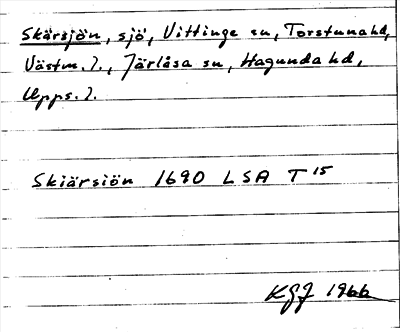 Skärsjön, sjö, Vittinge sn, Torstuna hd,
Västm. l., Järlåsa sn, Hagunda hd,
Upps. l.
Skiärsiön 1690 LSA T 15
KGJ 1966